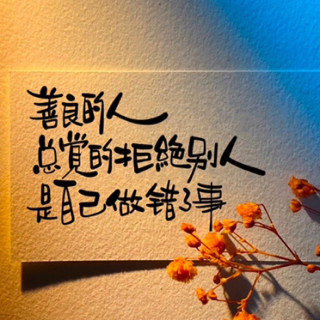 善良的人
总覚的拒絶别人
是自己做错了事